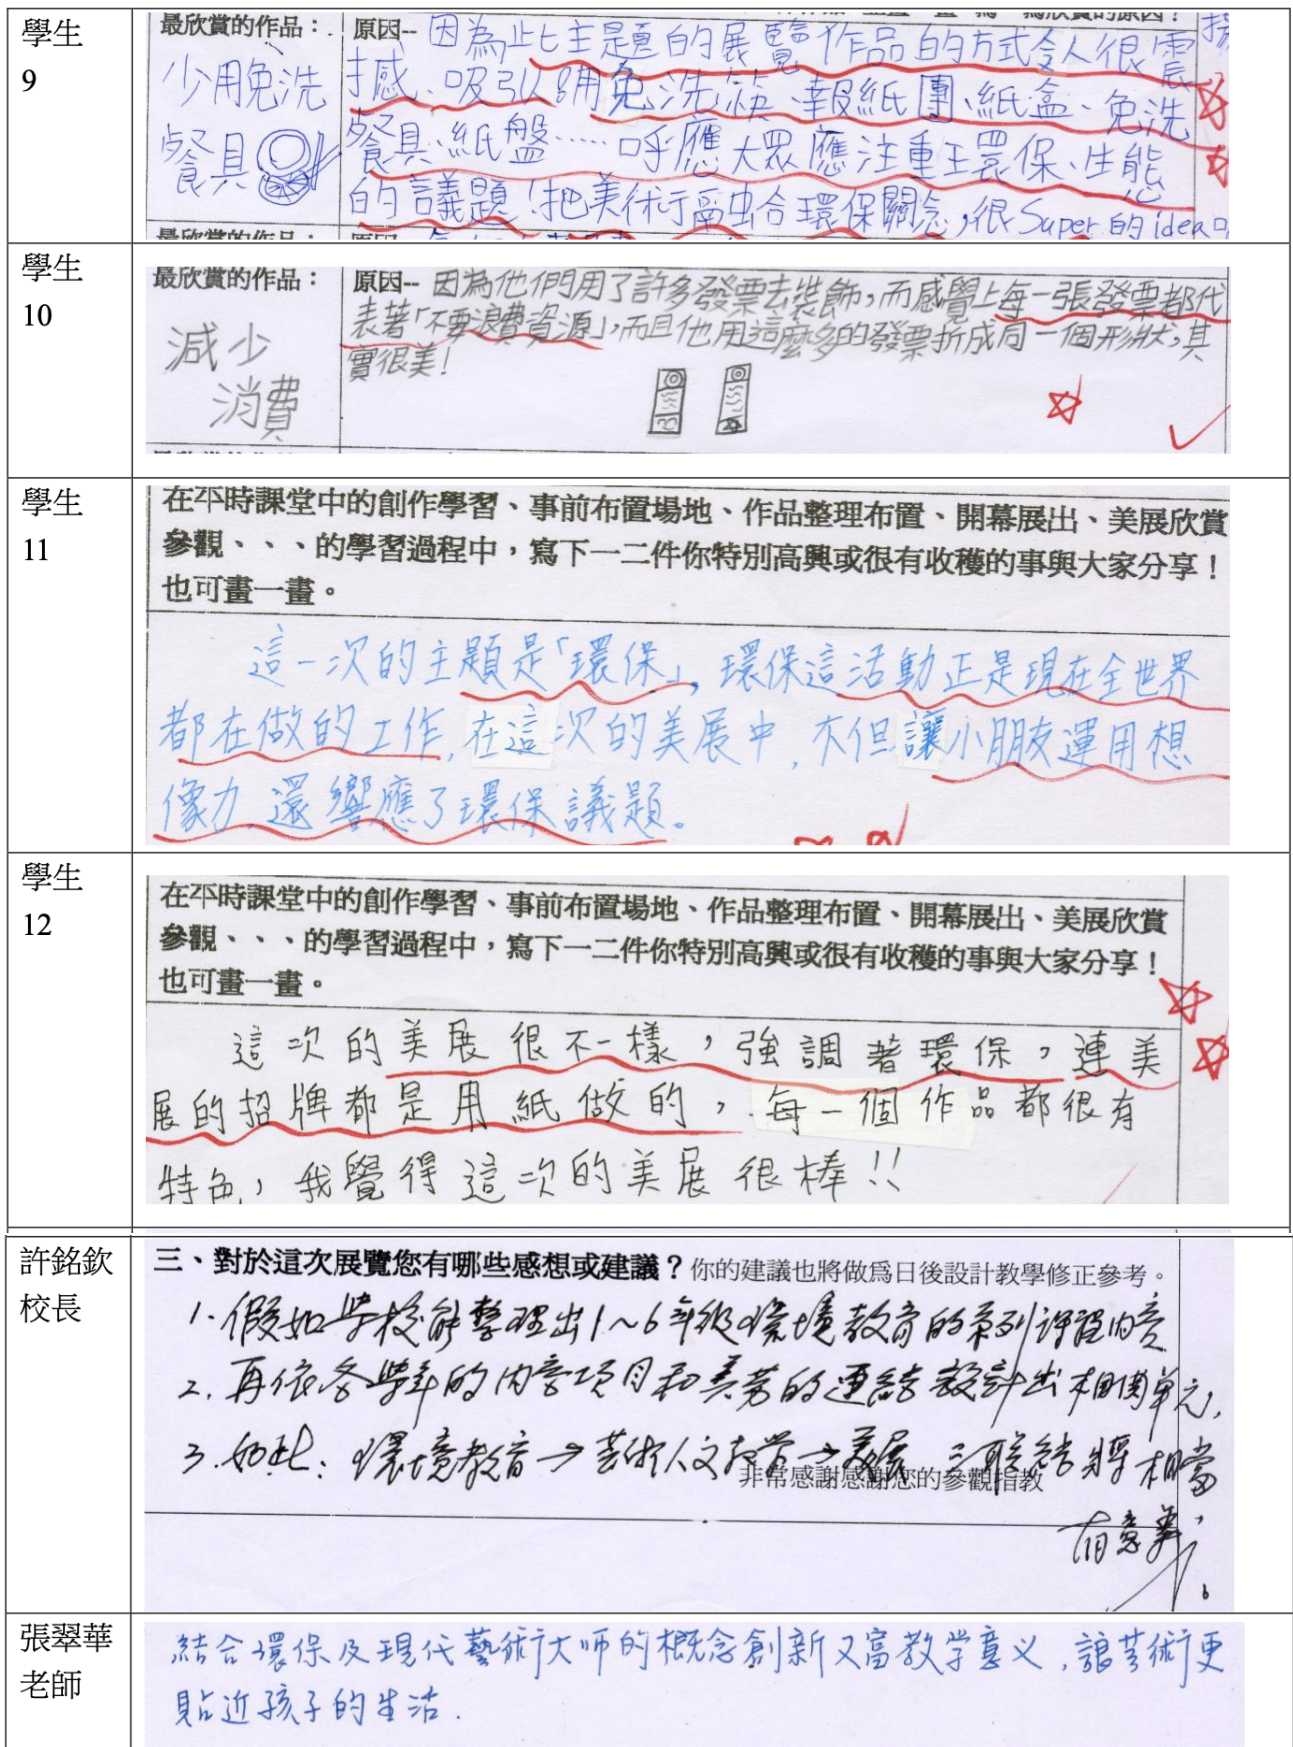 學生
9
最欣賞的作品：
少用免洗
餐具
原因-- 因為此主題的展覽作品的方式令人很震
撼、吸引、用免洗筷、報紙團、紙盒、免洗
餐具、紙盤……呼應大眾應注重環保、生態
的議題！把美術融合環保關念，很Super的idea
學生
10
最欣賞的作品：
減少
消費
原因-- 因為他們用了許多發票去裝飾，而感覺上每一張發票都代
表著「不要浪費資源」，而且他用這麼多的發票折成同一個形狀，其
實很美！
學生
11
在平時課堂中的創作學習、事前布置場地、作品整理布置、開幕展出、美展欣賞
參觀、、、的學習過程中，寫下一二件你特別高興或很有收穫的事與大家分享！
也可畫一畫。
這一次的主題是「環保」，環保這活動正是現在全世界
都在做的工作，在這次的美展中，不但讓小朋友運用想
像力，還響應了環保議題。
學生
12
在平時課堂中的創作學習、事前布置場地、作品整理布置、開幕展出、美展欣賞
參觀、、、的學習過程中，寫下一二件你特別高興或很有收穫的事與大家分享！
也可畫一畫。
這次的美展很不一樣，強調著環保，連美
展的招牌都是用紙做的，每一個作品都很有
特色，我覺得這次的美展很棒!!
許銘欽
校長
三、對於這次展覽您有哪些感想或建議？你的建議也將做為日後設計教學修正參考。
1. 假如學校能整理出1~6年級環境教育的系列課程內容
2. 再依各學年的內容項目和美勞的連結設計出相關單元，
3. 如此：環境教育→芸術人文教学→美展 三联結將相當
非常感謝感謝您的參觀指教
有意義，
張翠華
老師
結合環保及現代藝術大師的概念創新又富教学意义，讓芸術更
貼近孩子的生活．